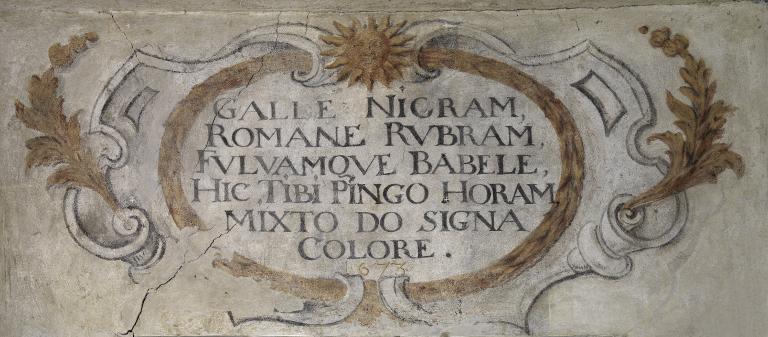 GALLE NIGRAM,
ROMANE RVBRAM,
FVLVAMQVE BABELE,
HIC TIBI PINGO HORAM
MIXTO DO SIGNA
COLORE.
1673